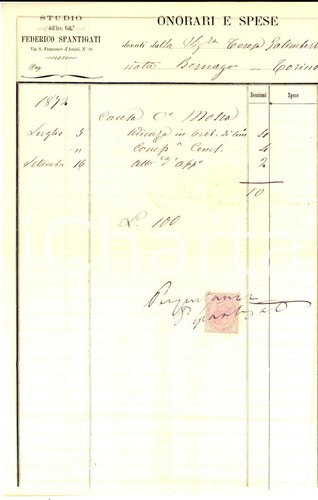 STUDIO
dell'Avv. Coll.º
FEDERICO SPANTIGATI
Via S. Francesco d'Assisi, N°
Pag.
ONORARI E SPESE
dovuti dalla Sig.ra Teresa Galimberti
nata Bernago - Torino
Sessioni Spese
1872
Causa C.a Motta
Luglio 5 Udienza in trib. di 4
" Comp.a Conf. 4
Settembre 14 Att. d'app.o 2
10
L. 100
Per quitanza
Spantigati